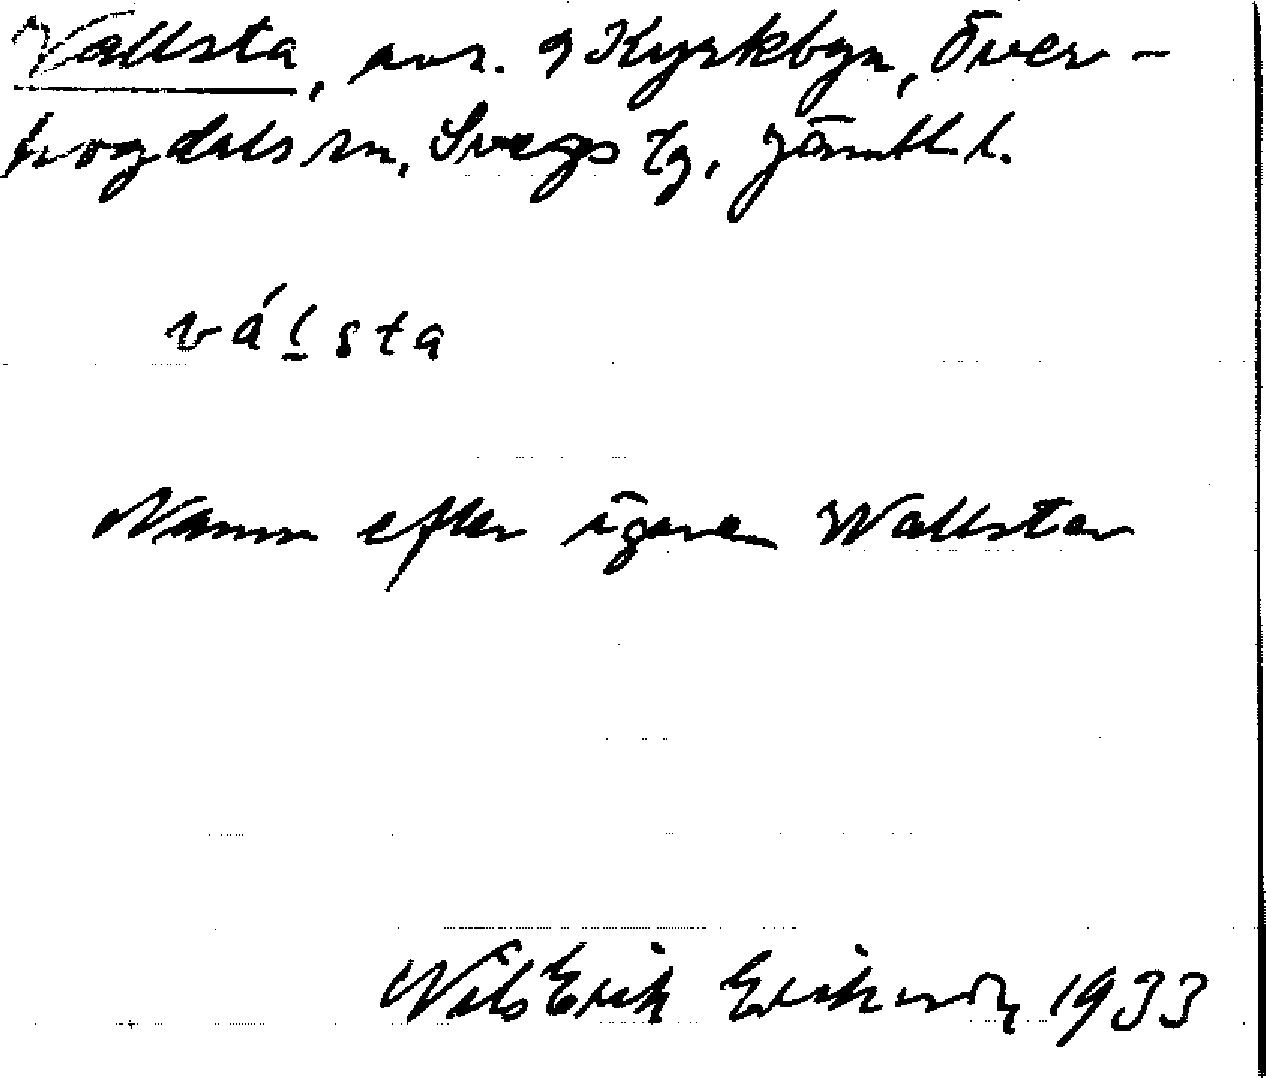 Vallsta, avs. i Kyrkbyn, Över-
hogdals sn, Svegs tg, Jämtl. l.
vál̠sta
Namn efter ägaren Wallster
Nils Erik Eriksson 1933